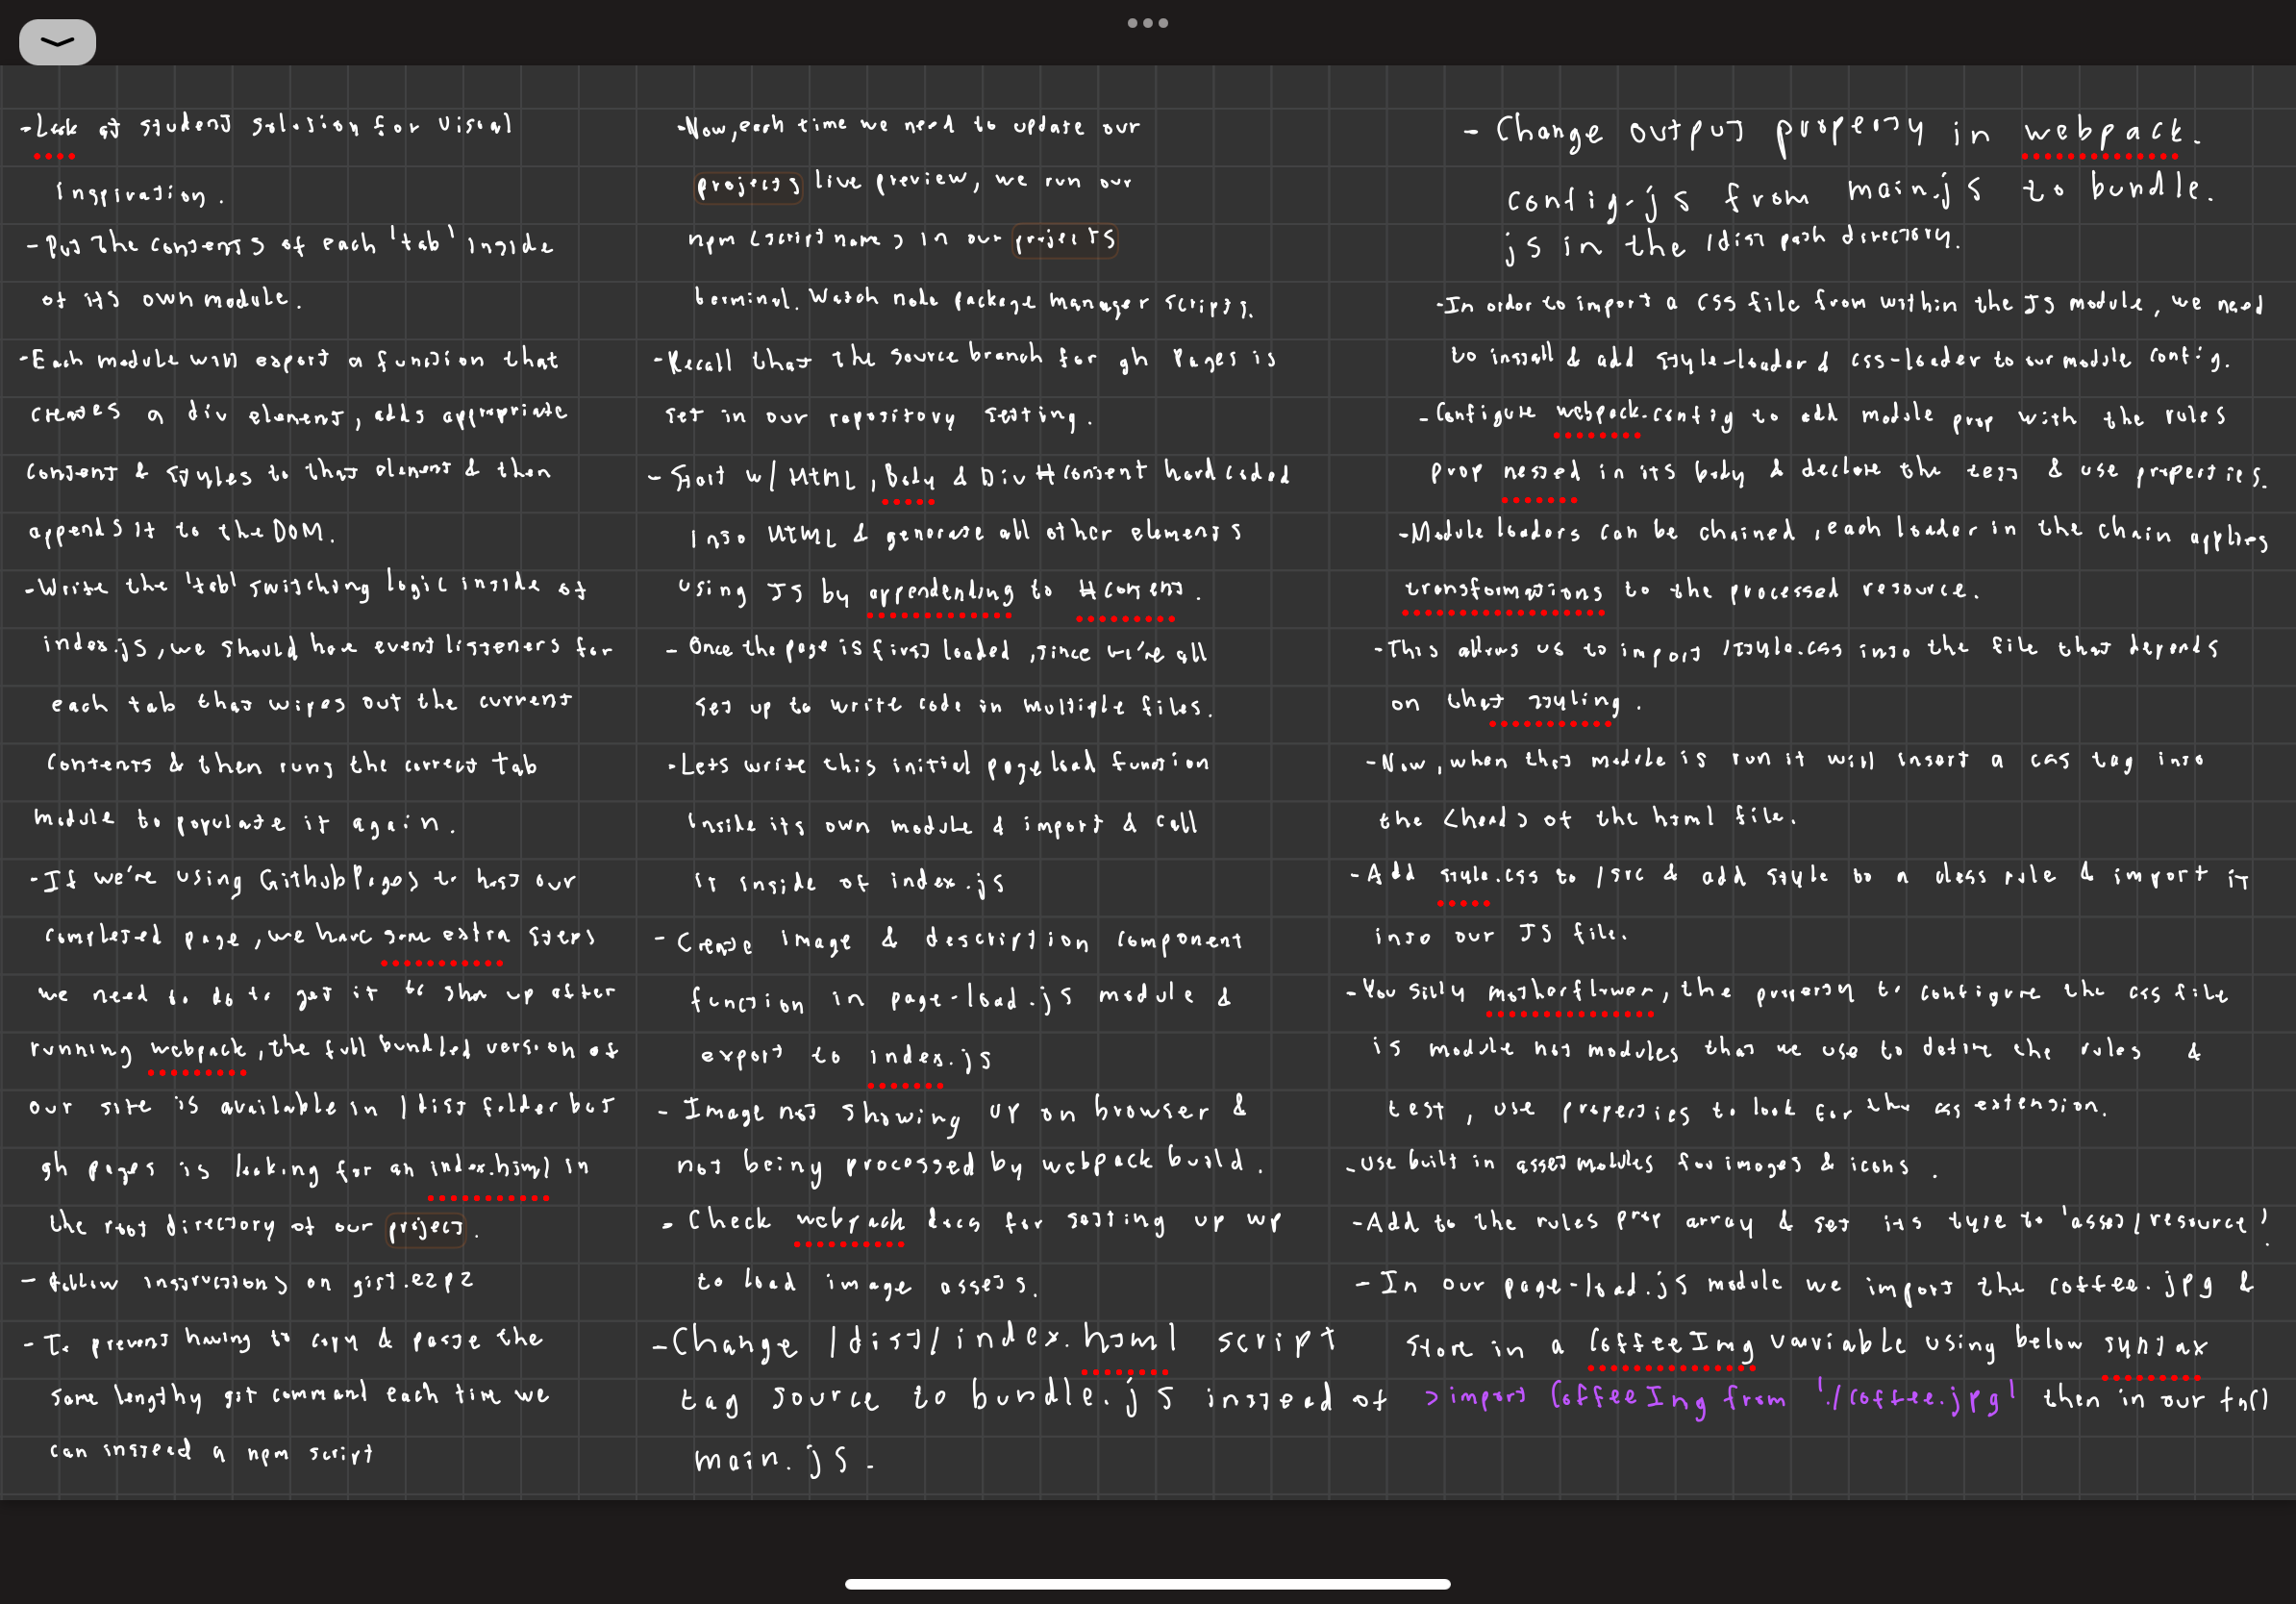 -Look at student solution for visual
inspiration.
-Put the contents of each 'tab' inside
of its own module.
-Each module will export a function that
creates a div element, adds appropriate
content & styles to that element & then
appends it to the DOM.
-Write the 'tab' switching logic inside of
index.js, we should have event listeners for
each tab that wipes out the current
contents & then runs the correct tab
module to populate it again.
-If we're using Github Pages to host our
completed page, we have some extra steps
we need to do to get it to show up after
running webpack, the full bundled version of
our site is available in /dist folder but
gh pages is looking for an index.html in
the root directory of our project.
- follow instructions on gist. ezpz
- To prevent having to copy & paste the
same lengthy git command each time we
can instead a npm script
-Now, each time we need to update our
projects live preview, we run our
npm <script name> in our projects
terminal. Watch node package manager scripts.
-Recall that the source branch for gh pages is
set in our repository setting.
- Start w/ HTML, Body & Div #content hard coded
into HTML & generate all other elements
using JS by appendending to #content.
- Once the page is first loaded, since we're all
set up to write code in multiple files.
-Lets write this initial page load function
inside its own module & import & call
it inside of index.js
- Create image & description component
function in page-load.js module &
export to index.js
- Image not showing up on browser &
not being processed by webpack build.
- Check webpack docs for setting up wp
to load image assets.
-Change /dist/index.html script
tag source to bundle.js instead of
main.js.
- Change output property in webpack.
config.js from main.js to bundle.
js in the /dist path directory.
-In order to import a CSS file from within the JS module, we need
to install & add style-loader & css-loader to our module config.
-Configure webpack.config to add module prop with the rules
prop nested in its body & declare the test & use properties.
-Module loaders can be chained, each loader in the chain applies
transformations to the processed resource.
-This allows us to import /style.css into the file that depends
on that styling.
-Now, when that module is run it will insert a css tag into
the <head> of the html file.
-Add style.css to /src & add style to a class rule & import it
into our JS file.
-You silly motherflower, the property to configure the css file
is module not modules that we use to define the rules &
test, use properties to look for the css extension.
-use built in asset modules for images & icons.
-Add to the rules prop array & set its type to 'asset/resource'.
-In our page-load.js module we import the coffee.jpg &
store in a CoffeeImg variable using below syntax
>import CoffeeImg from './coffee.jpg' then in our fn()